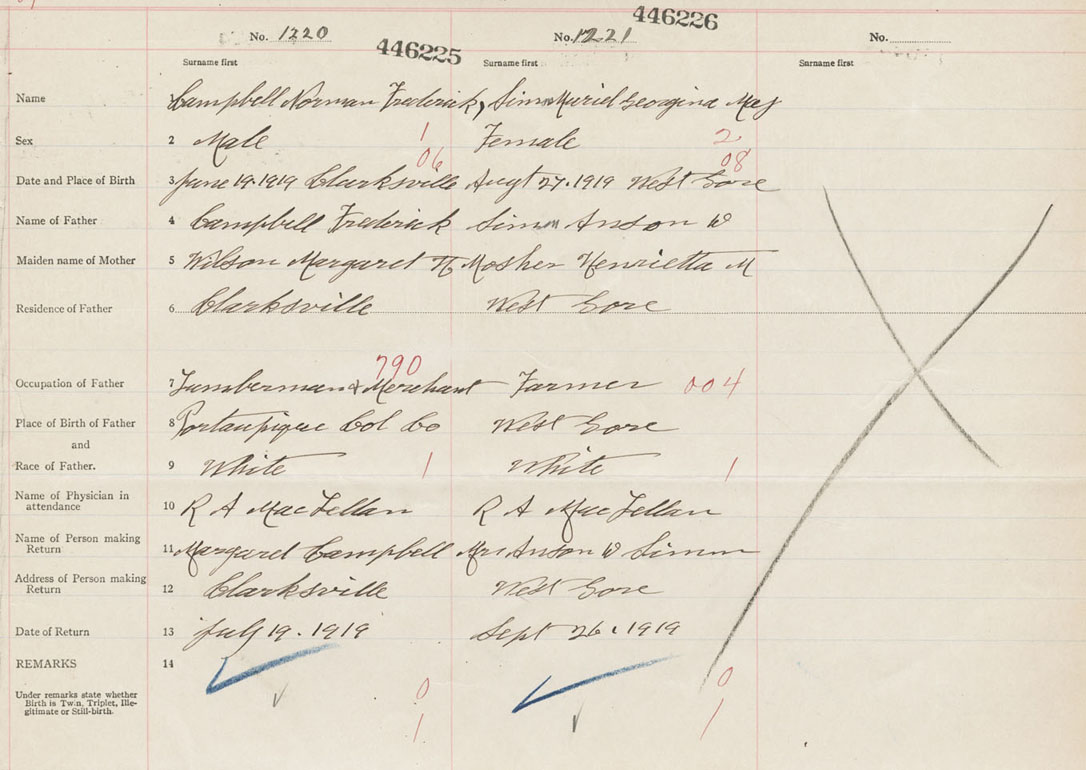 No. 1220 446225 No. 1221 446226 No.
Surname first Surname first Surname first
Name 1 Campbell Norman Frederick, Simm Muriel Georgina May
Sex 2 Male 1 Female 2
06 08
Date and Place of Birth 3 June 19. 1919 Clarksville Augt 27. 1919 West Gore
Name of Father 4 Campbell Frederick Simm Anson W
Maiden name of Mother 5 Wilson Margaret H Mosher Henrietta M
Residence of Father 6 Clarksville West Gore
790
Occupation of Father 7 Lumberman & Merchant Farmer 004
Place of Birth of Father 8 Portaupique Col Co West Gore
and
Race of Father. 9 White 1 White 1
Name of Physician in attendance 10 R A MacLellan R A MacLellan
Name of Person making Return 11 Margaret Campbell Mrs Anson W Simm
Address of Person making Return 12 Clarksville West Gore
Date of Return 13 July 19. 1919 Sept 26. 1919
REMARKS 14
Under remarks state whether
Birth is Twin, Triplet, Ille-
gitimate or Still-birth.
0 0
1 1